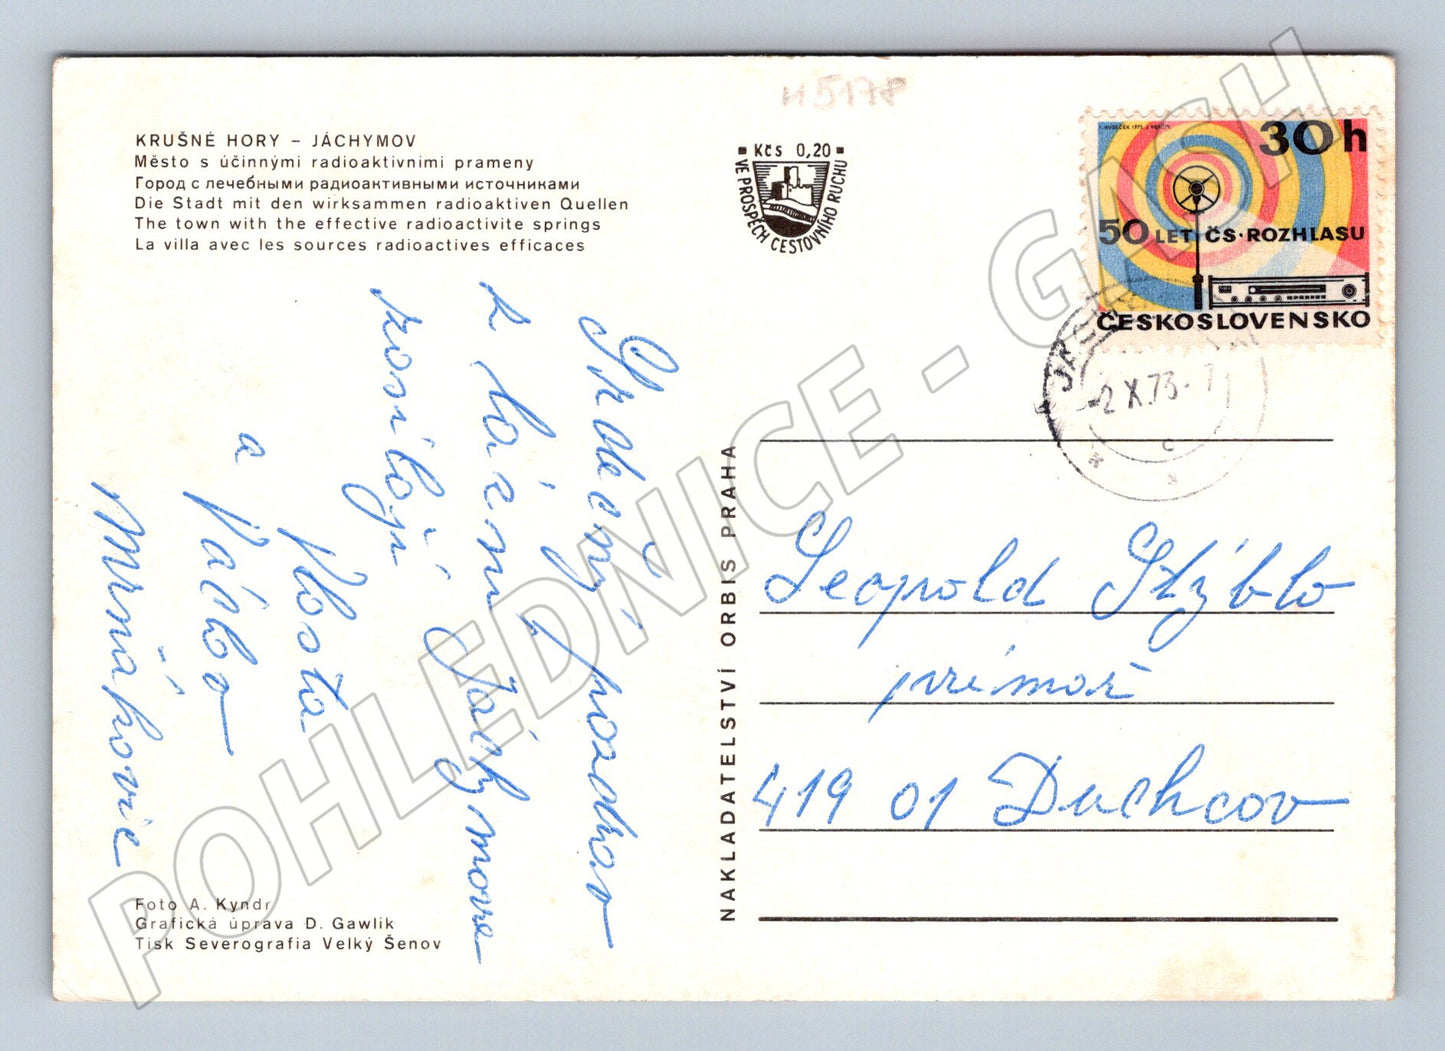 H5178
KRUŠNÉ HORY – JÁCHYMOV
Město s účinnými radioaktivními prameny
Город с лечебными радиоактивными источниками
Die Stadt mit den wirksammen radioaktiven Quellen
The town with the effective radioactivite springs
La villa avec les sources radioactives efficaces
Kčs 0,20
VE PROSPĚCH CESTOVNÍHO RUCHU
30 h
50 LET ČS. ROZHLASU
ČESKOSLOVENSKO
-2.X.73-
C
Srdečný pozdrav
z lázní Jáchymova
posílají
Vlasta
a
Václav
NAKLADATELSTVÍ ORBIS PRAHA
Leopold Stýblo
primař
419 01 Duchcov
Foto A. Kyndr
Grafická úprava D. Gawlik
Tisk Severografia Velký Šenov
POHLEDNICE - GASH